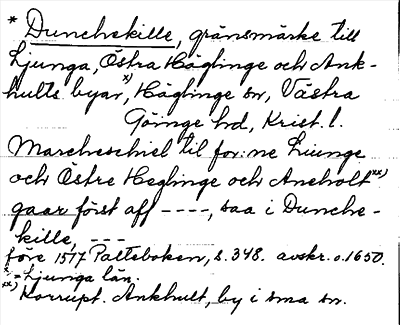 * Dunchekille, gränsmärke till
Ljunga, Östra Höglinge och Ank-
hults byar,ˣ⁾ Höglinge sn, Västra
Göinge hd, Krist. l.
Marcheschiel til for:ne Liunge
och Östre Heglinge och Aneholtˣˣ⁾
gaar först aff ----, saa i Dunche-
kille, ---
före 1577 Palteboken, s. 348. avskr. o. 1650.
ˣ⁾ = Ljunga län.
ˣˣ⁾ Korrupt. Ankhult, by i sma sn.